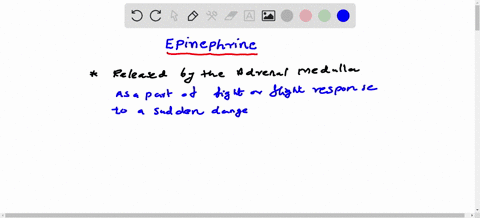 Epinephrine
* Released by the Adrenal medulla
As a part of fight or flight response
to a sudden dange